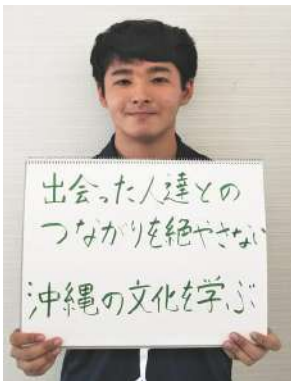 出会った人達との
つながりを絶やさない
沖縄の文化を学ぶ